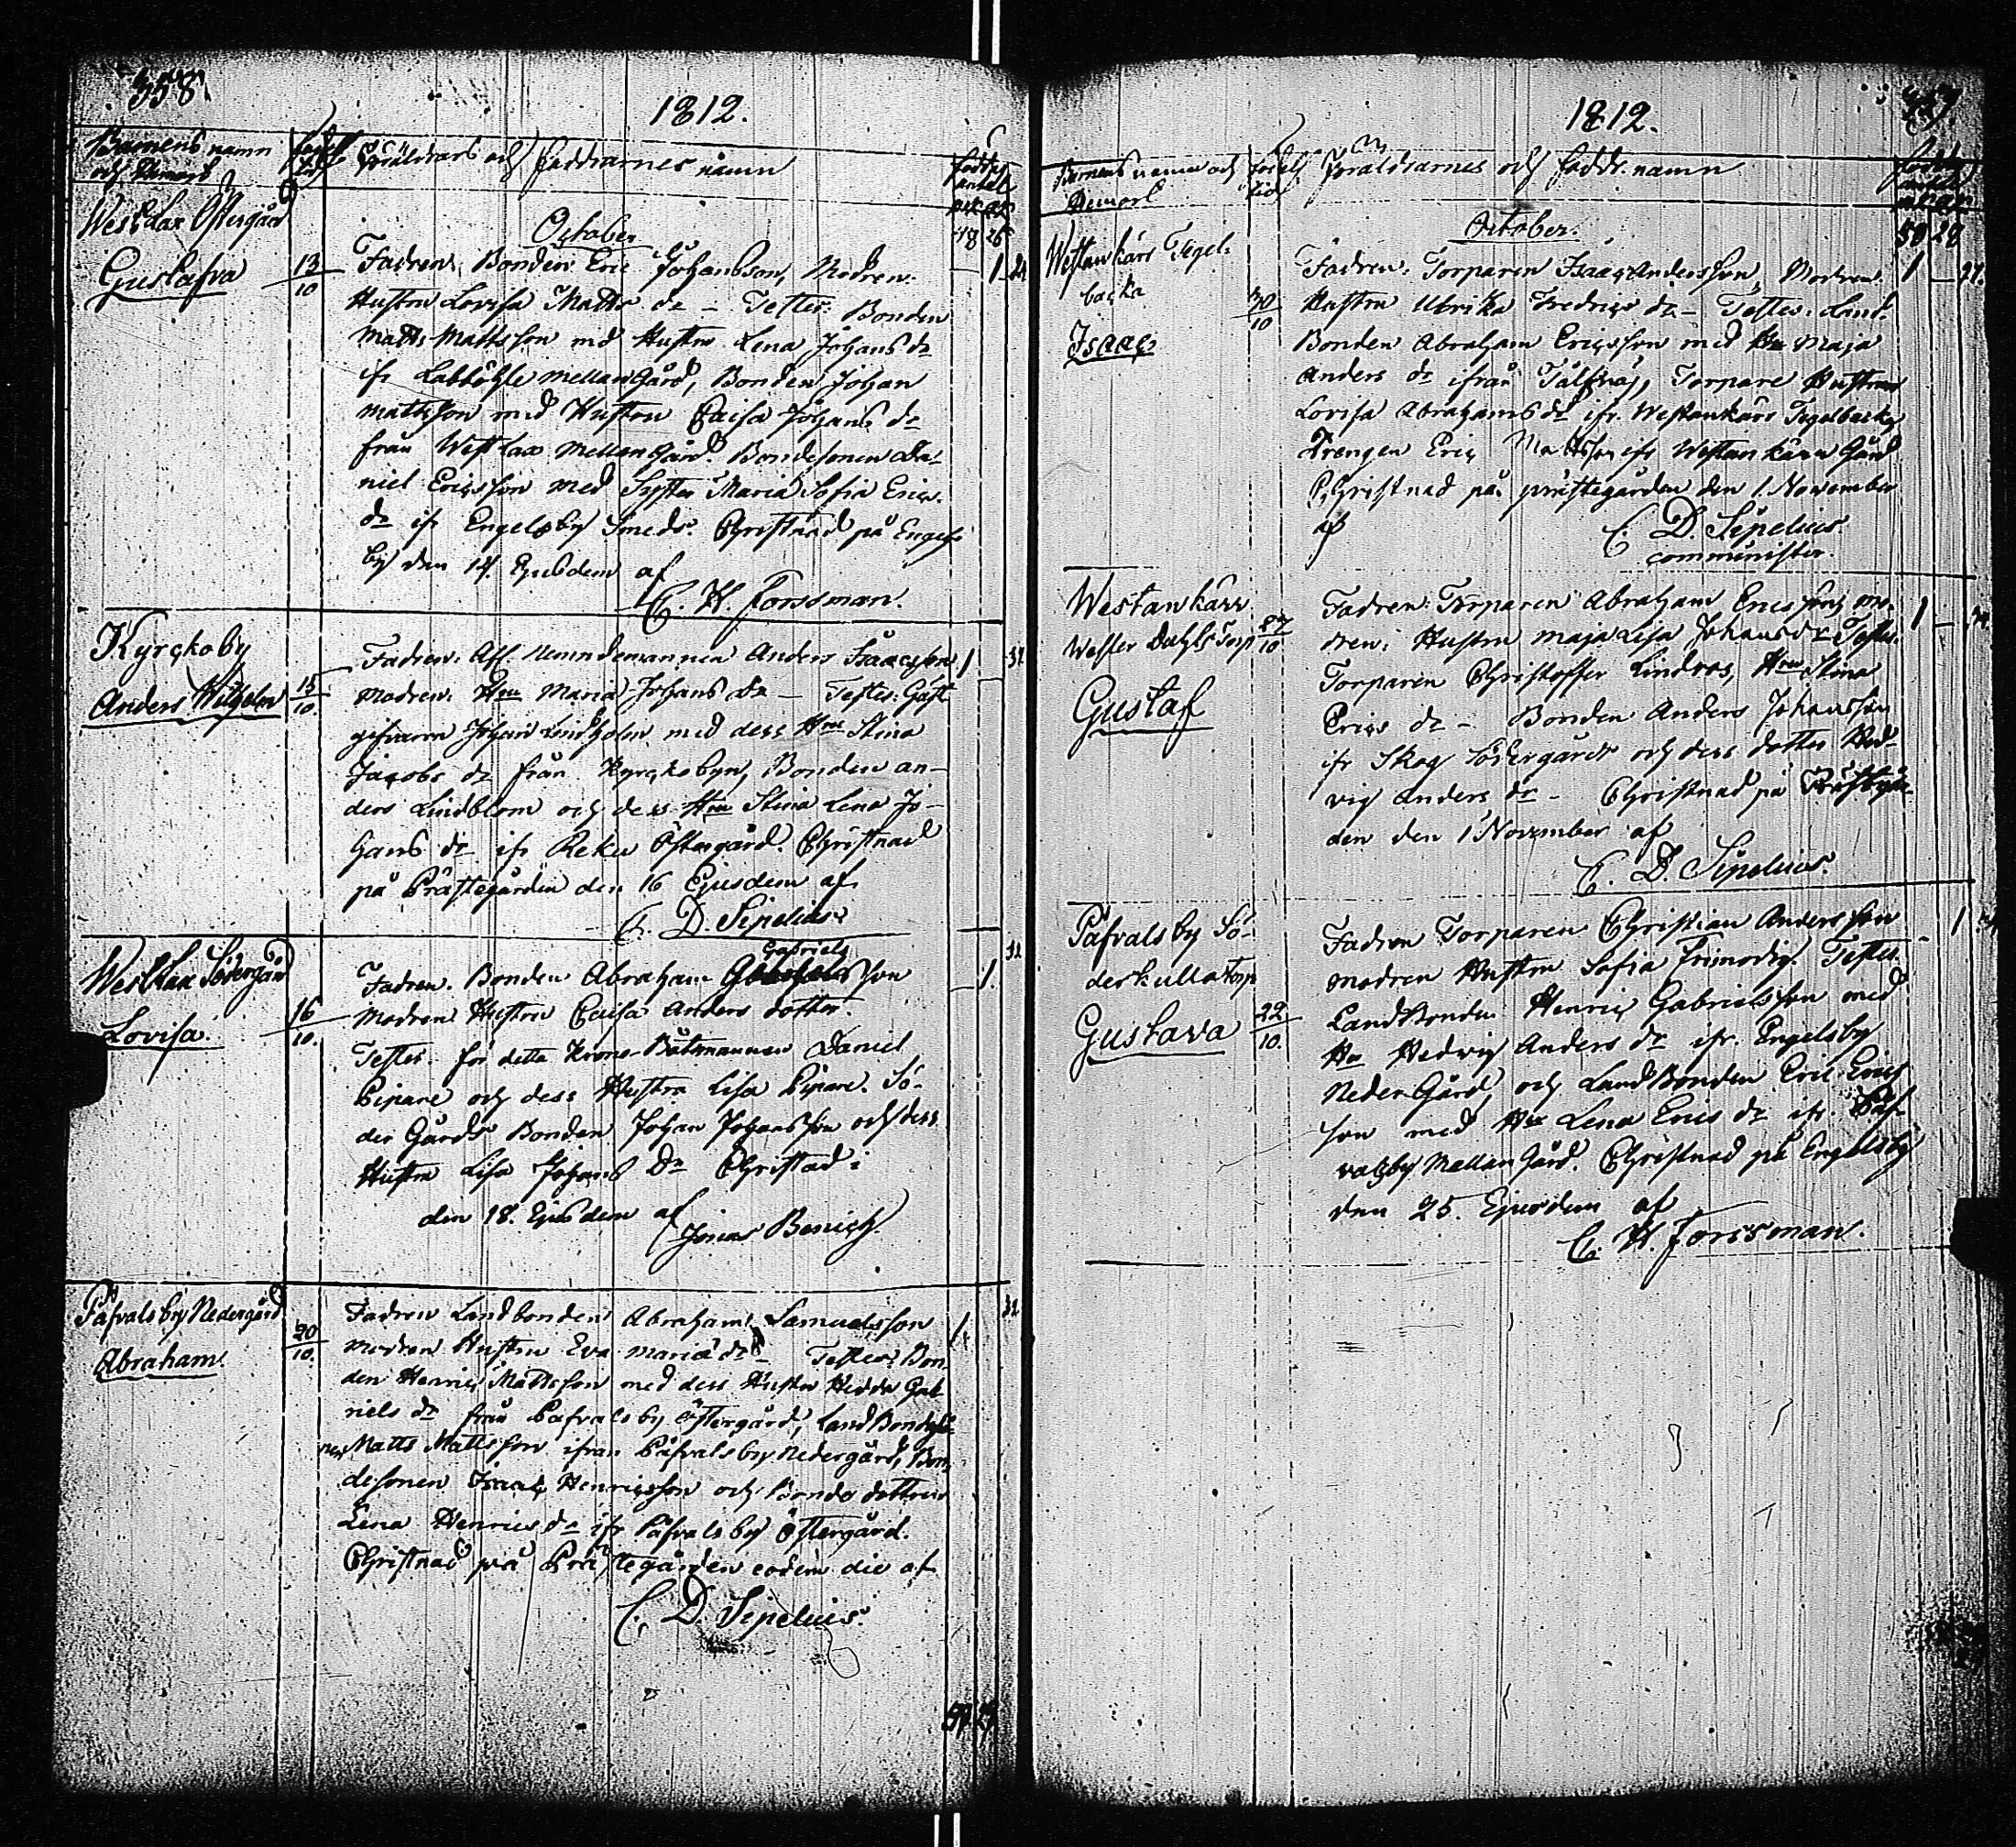 358.
1812.
Barnens namn
och Hemort
Föräldrars och Faddrarnes namn
Westlax Östergård
October
18 26
Gustafva
13/10
Fadren: Bonden Eric Johansson, Modren:
1
Hustru Lovisa Matts dr – Testes: Bonden
Matts Mattsson med Hustru Lena Johans dr
ifr Labböhle mellangård, Bonden Johan
Mattsson med Hustru Caisa Johans dr
från Westlax Mellangård. Bondesonen Da-
niel Ericsson med Syster Maria Sofia Erics
dr ifr Engelsby Smeds. Christnad på Engels
by den 14 Ejusdem af
C. H. Forssman.
Kyrckoby
Anders Wilhelm
15/10.
Fadren: Nemndemannen Anders Isaacsson
1
Modren: Hru Maria Johans dr – Testes: Gäst
gifvaren Johan Lindholm med dess Hru Stina
Jacobs dr från Kyrckobyn, Bonden An-
ders Lindblom och dess Hru Stina Lena Jo-
hans dr ifr Reku Östergård. Christnad
på Prästegården den 16 Ejusdem af
C. D. Sipelius
Westlax Södergård
Gabriels
Fadren. Bonden Abraham son
1.
32
Lovisa.
16/10.
Modren Hustru Caisa Anders dotter.
Testes. för detta Krono-Båtsmannen Daniel
Pipare och dess Hustru Lisa Pipare. Sö-
der Gårds Bonden Johan Johansson och dess
Hustru Lisa Johans Dr Christnad i
den 18. Ejusdem af
Jonas Benich
Påfvalsby Nedergård
Abraham.
20/10.
Fadren Landbonden Abraham Samuelsson
1.
32
Modren Hustru Eva Maria dr – Testes: Bon
den Henric Mattsson med dess Hustru Hedda Gab
riels dr från Påfvalsby Östergård, LandBondeso-
nen Matts Mattsson ifrån Påfvalsby Nedergård, Bon
desonen Isaac Henricsson och Bonde dottren
Lena Henrics dr ifr Påfvalsby Östergård.
Christnad på Prästegården eodem die af
C. D. Sipelius.
1812.
Barnens namn och
Hemort
Födelse
tid
Föräldrarnes och Fadd. namn
Westankärr Tegel-
backa
October.
50 28
Isaac
30/10
Fadren: Torparen Isaac Andersson, Modren:
1 – 27.
Hustru Ulrika Fredrics dr – Testes: Land-
Bonden Abraham Ericsson med Hu Maja
Anders dr ifrån Tålfnäs, Torpare Hustrun
Lovisa Abrahams dr ifr. Westankärr Tegelbacka
Drengen Eric Mattsson ifr Westankärr Gård
Christnad på prästegården den 1. November
af
C. D. Sipelius.
comminister.
Westankärr
Wester Dahls Torp
27/10
Gustaf
Fadren: Torparen Abraham Ericsson, Mo-
1 –
dren: Hustru Maja Lisa Johans dr Testes.
Torparen Christoffer Lindroos, Hru Stina
Erics dr – Bonden Anders Johansson
ifr Skog Södergård och dess dotter Hed-
vig Anders dr – Christnad på Prästgår
den den 1 November af
C. D. Sipelius.
Påfvalsby Sö-
derkulla Torp
Gustava
22/10.
Fadren Torparen Christian Andersson
1
Modren Hustru Sofia Frimodig. Testes.
LandBonden Henric Gabrielsson med
Hu Hedvig Anders dr ifr. Engelsby
NederGård, och LandBonden Eric Erics
son med Hu Lena Erics dr ifr. Påf-
valsby MellanGård. Christnad på Engelsby
den 25. Ejusdem af
C. H. Forssman.